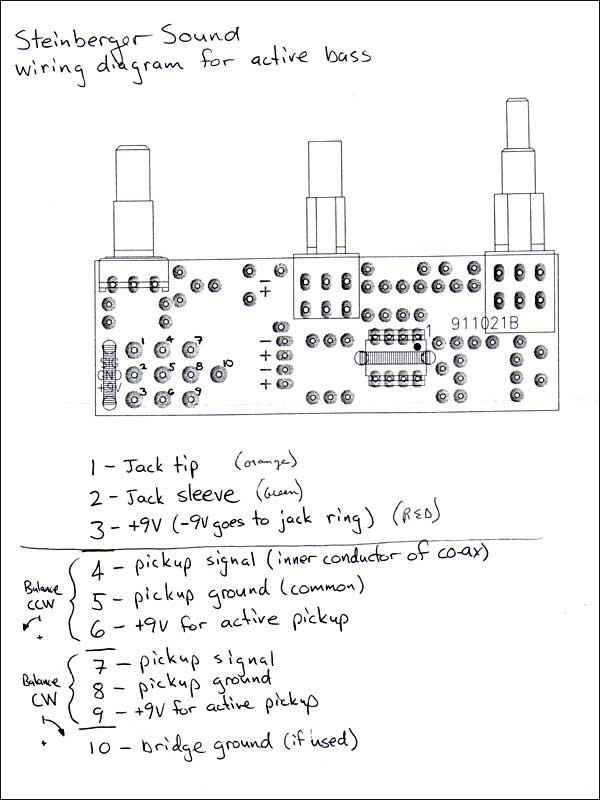 Steinberger Sound
wiring diagram for active bass
− +
1 911021B
1 4 7
− + − + −
SIG
GND 2 5 8 10
+9V 3 6 9
1 – Jack tip (orange)
2 – Jack sleeve (Green)
3 – +9V (-9V goes to jack ring) (RED)
4 – pickup signal (inner conductor of co-ax)
Balance CCW 5 – pickup ground (common)
6 – +9V for active pickup
7 – pickup signal
Balance CW 8 – pickup ground
9 – +9V for active pickup
10 – bridge ground (if used)